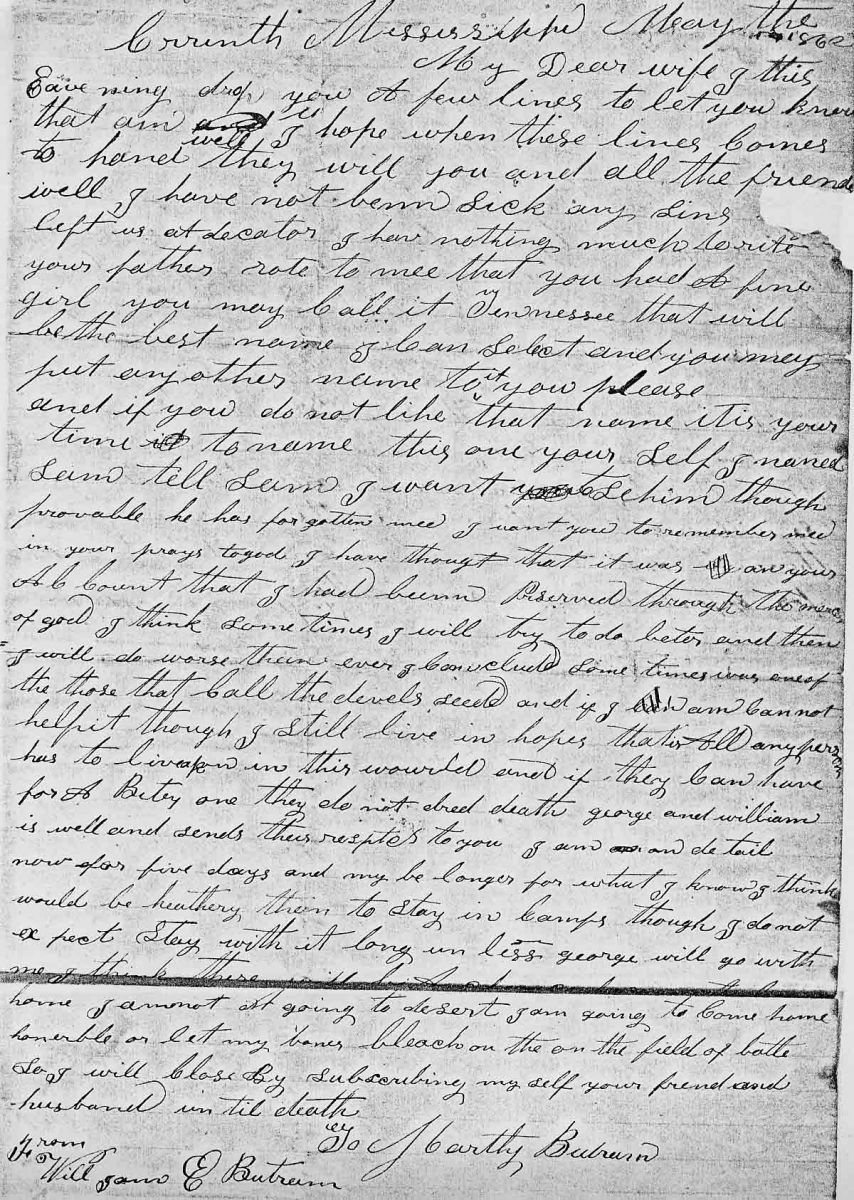 Corrinth Mississippi May the
1862
My Dear wife I this
Eave ning drop you A few lines to let you know
that am well I hope when these lines Comes
to hand they will you and all the friends
well I have not benn Sick any Sins
left us at decator I hav nothing much to rite
your father rote to mee that you had A fine
girl you may Call it Tennessee that will
be the best name I Can Select and you may
put any other name to it you please
and if you do not like that name it is your
time to name this one your Self I named
Sam tell Sam I want to Se him though
provable he has forgotten mee I want you to remember mee
in your prays to god I have thought that it was on your
AC Count that I had beenn Preserved through the mercy
of god I think Some times I will try to do beter and then
I will do worse than ever I Convelude Some times was one of
the those that Call the devels seed and if I am Can not
help it though I Still live in hopes that is All any person
has to live upon in this wourld and if they Can have
for A Betey one they do not dred death george and william
is well and sends theis resptes to you I am on de tail
now for five days and my be longer for what I know I think
would be heathery then to Stay in Camps though I do not
ex pect Stay with it long un less george will go with
me I think there will be
home I am not at going to desert I am going to Come home
honerble or let my bones bleach on the on the field of batle
So I will Close By Subscribing my self your frend and
husband un til death
To Marthy Butram
From
Will iam E Butram